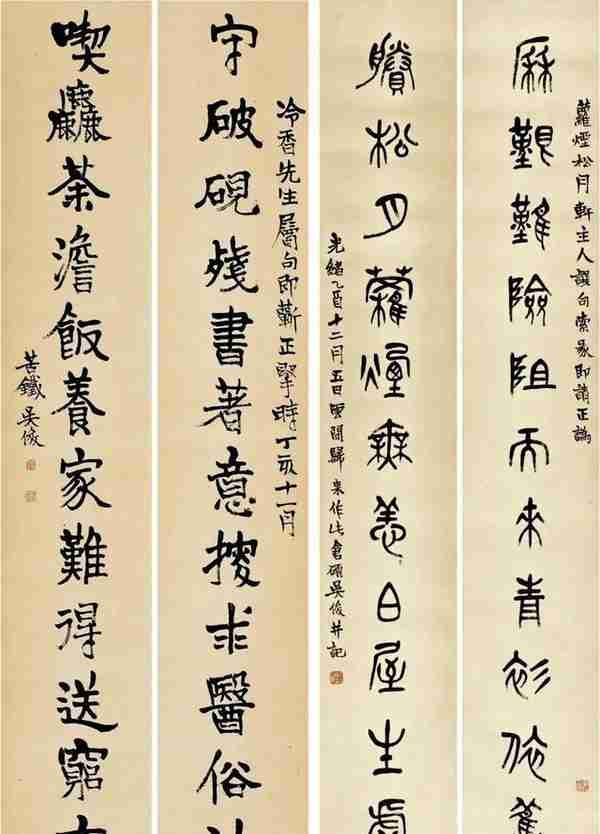 蘿煙松月軒主人譔句索篆即請正譌
厤艱難險阻而來青衫依舊
賸松月蘿煙無恙白屋生虛
光緒乙酉十二月五日雲間歸來作此倉碩吳俊并記
冷香先生屬句即蘄正擘時丁亥十一月
守破硯殘書著意搜求醫俗法
喫麤茶澹飯養家難得送窮方
苦鐵吳俊